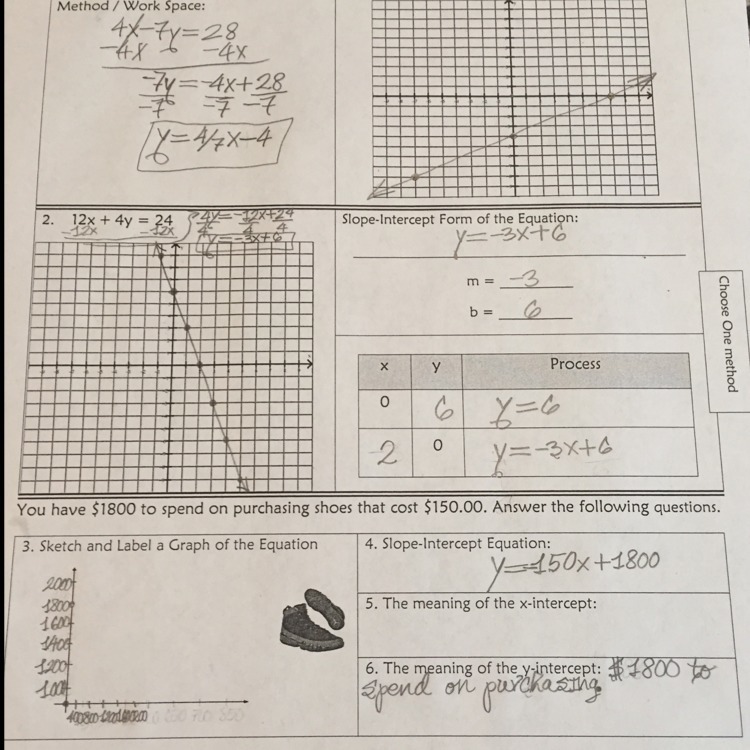 Method / Work Space:
4x-7y=28
-4x -4x
-7y=-4x+28
-7 -7 -7
y=4/7x-4
2. 12x + 4y = 24
-12x -12x
4y=-12x+24
4 4 4
y=-3x+6
Slope-Intercept Form of the Equation:
y=-3x+6
m = -3
b = 6
Choose One method
x y Process
0 6 y=6
2 0 y=-3x+6
You have $1800 to spend on purchasing shoes that cost $150.00. Answer the following questions.
3. Sketch and Label a Graph of the Equation
2000
1800
1600
1400
1200
4. Slope-Intercept Equation:
y=-150x+1800
5. The meaning of the x-intercept:
6. The meaning of the y-intercept: $1800 to
spend on purchasing.